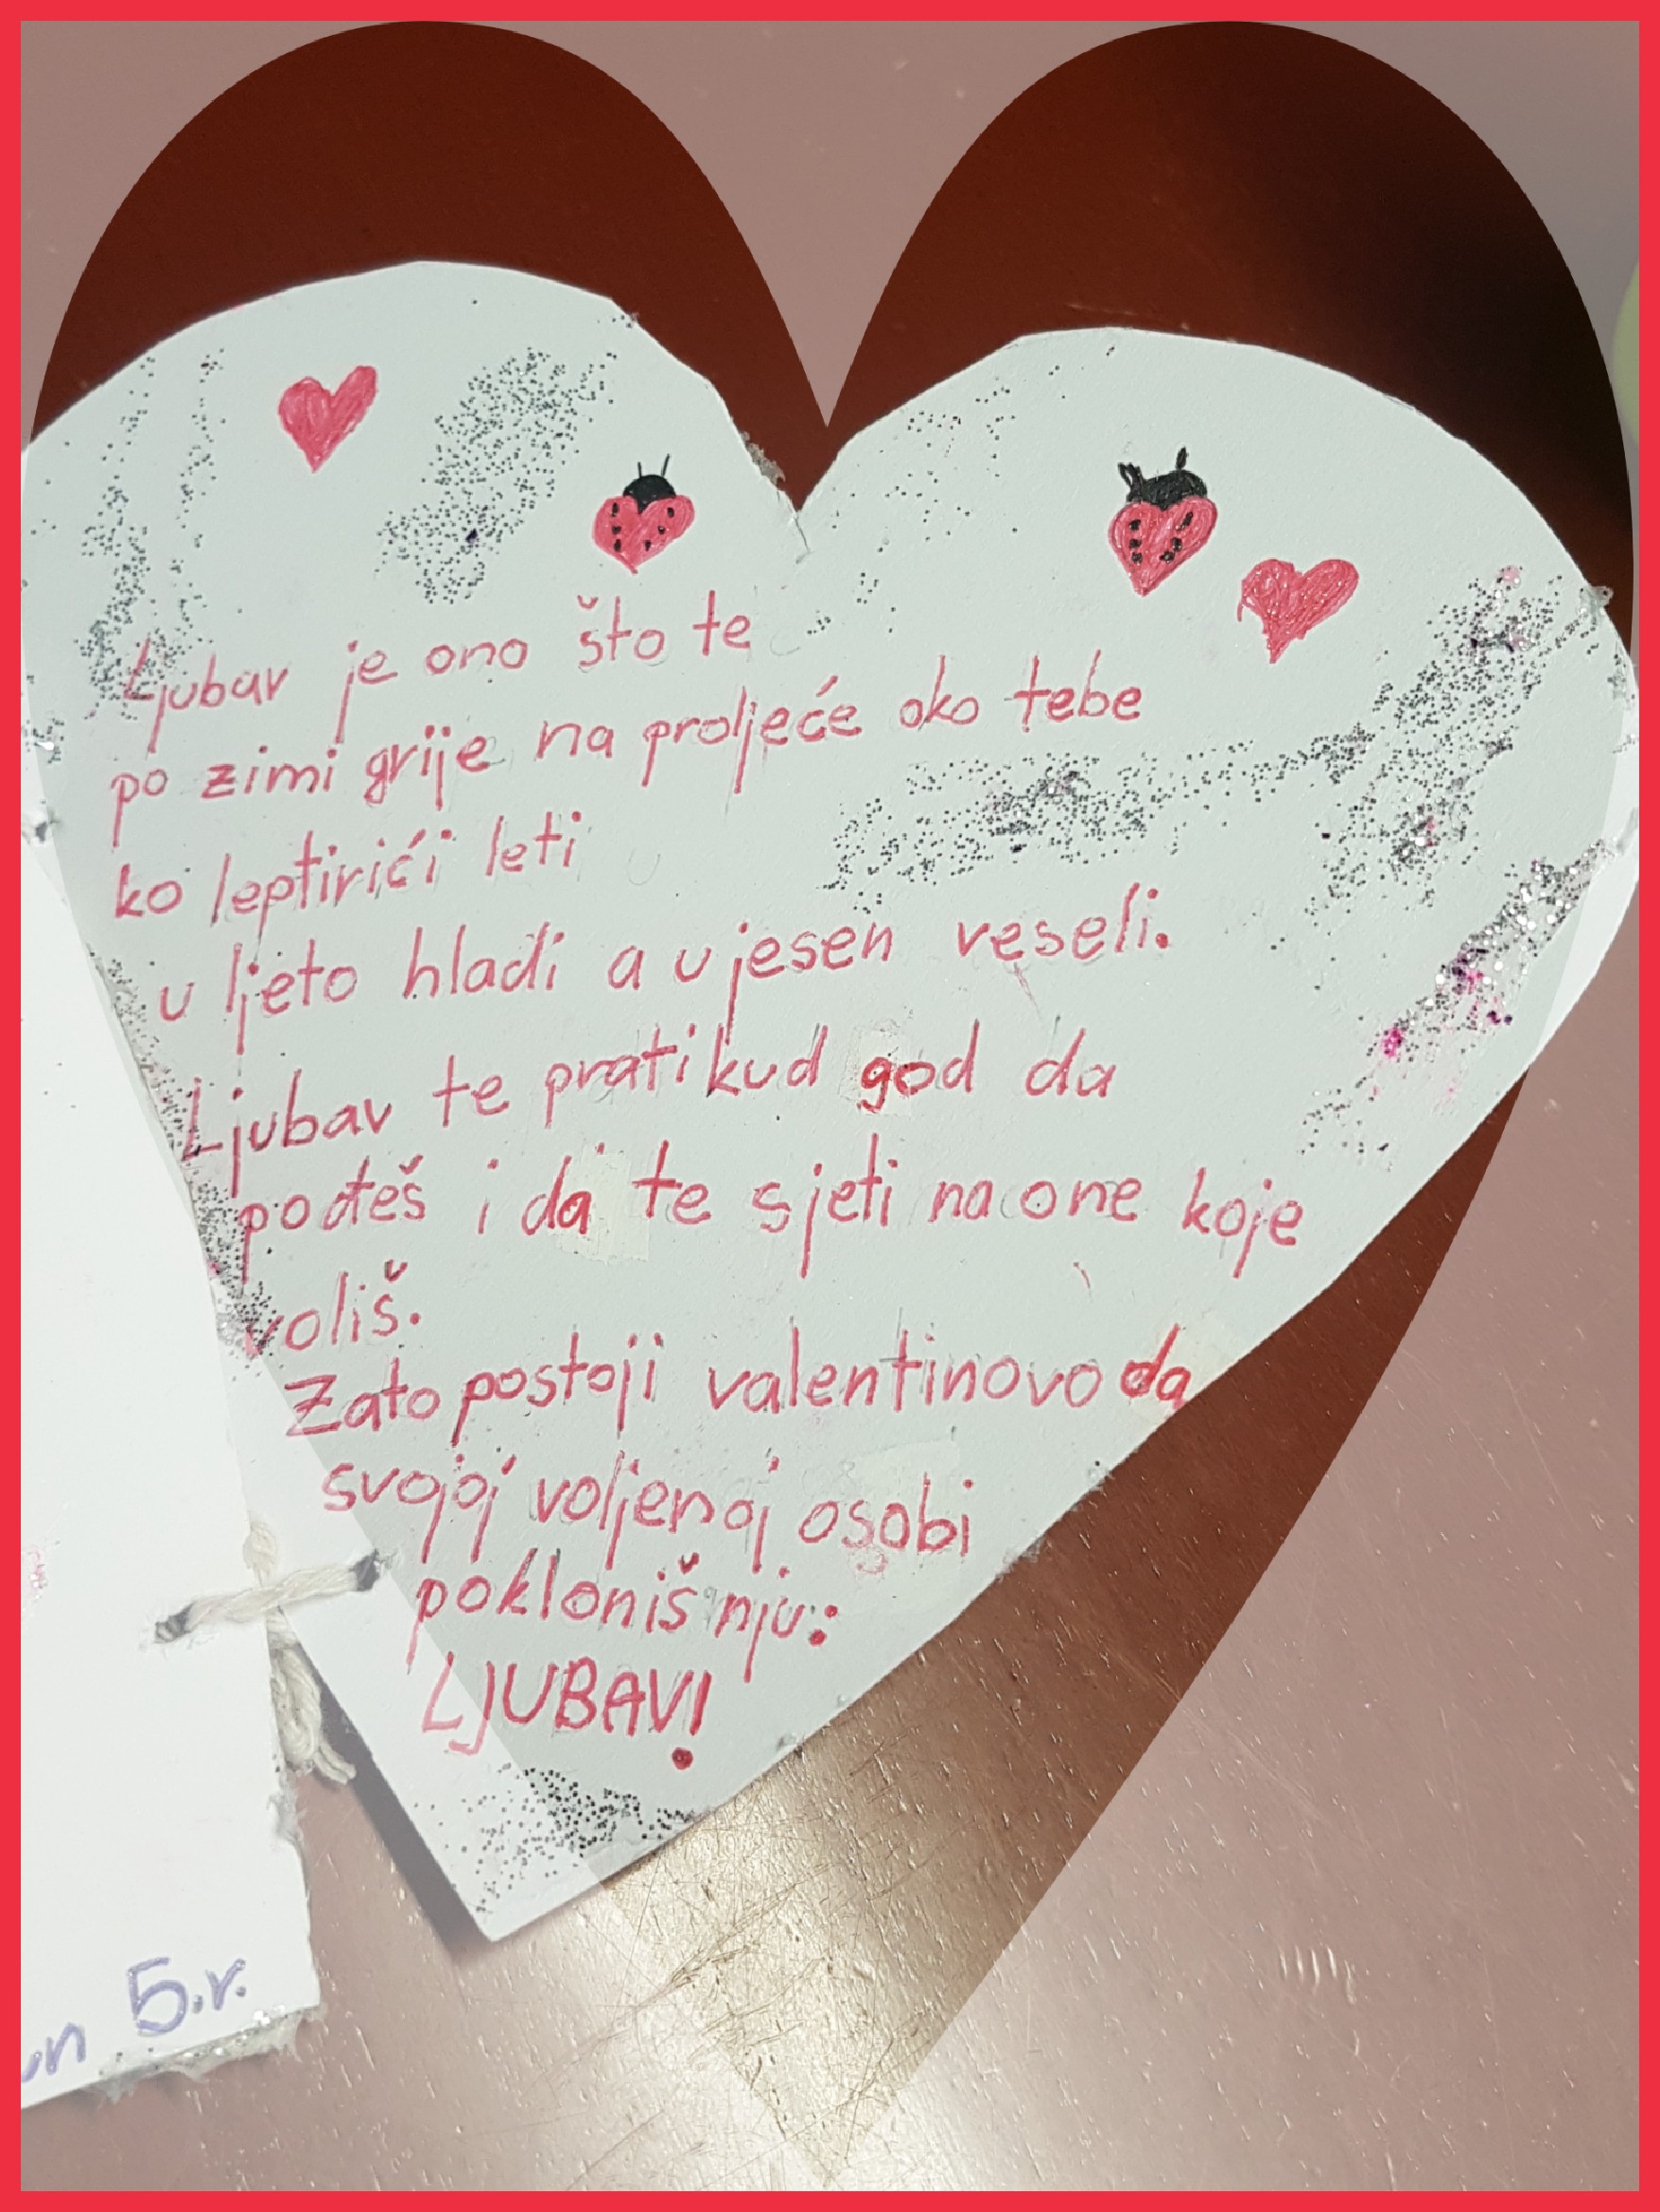 Ljubav je ono što te
po zimi grije na proljeće oko tebe
ko leptirići leti
u ljeto hladi a u jesen veseli.
Ljubav te prati kud god da
pođeš i da te sjeti na one koje
voliš.
Zato postoji valentinovo da
svojoj voljenoj osobi
pokloniš nju:
LJUBAV!
5.r.